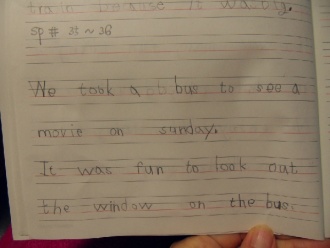 train because it was
sp # 35 ~ 36
We took a bus to see a
movie on sunday.
It was fun to look out
the window on the bus.